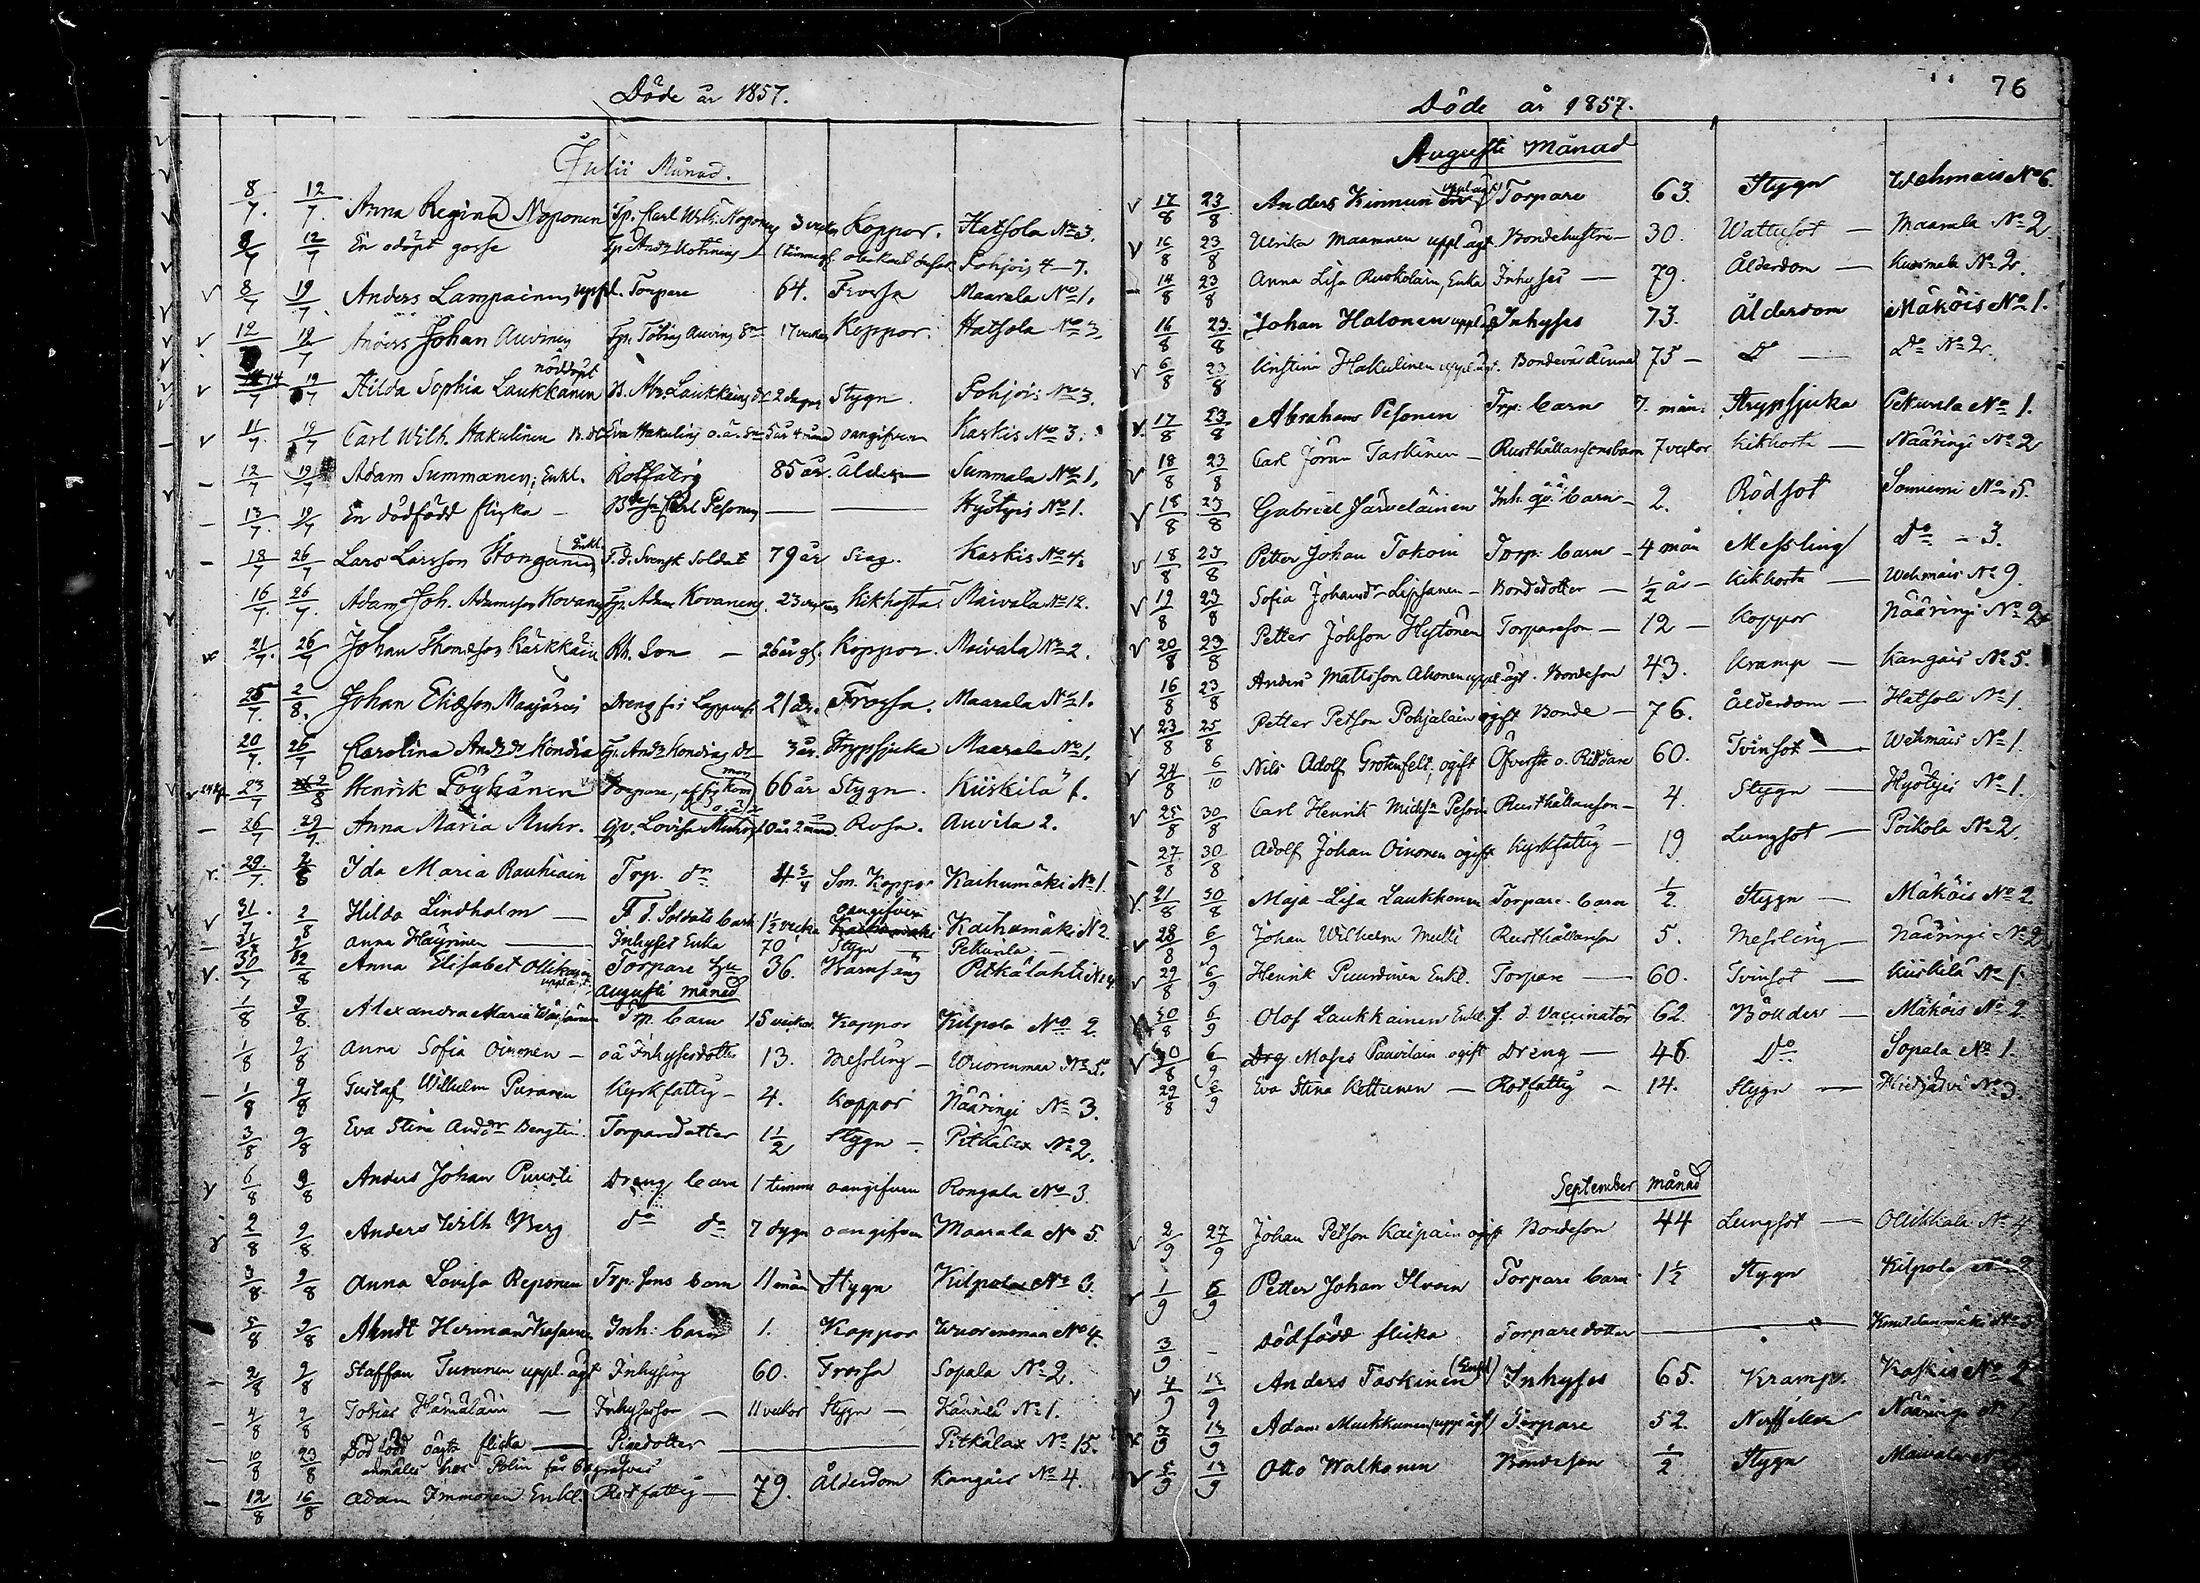 76
Döde år 1857.
Julii Månad.
8/7. 12/7. Anna Regina Noponen Tp. Carl Wilh. Noponen 3 veckor Koppor. Hatsola No 3.
9/7 12/7 En odöpt gosse Tp. Andr. 1 timme gl. obekant Pohjois 4-7.
8/7 19/7 Anders Lampainen, uppl. Torpare 64. Frossa Maarala No 1.
12/7 19/7 Anders Johan Auvinen Tp. Tobias Auvinens Sn 17 veckor Koppor. Hatsola No 3.
14/7 19/7 Hilda Sophia Laukkanen nöddöpt B. Abr. Laukkanens dr 2 dygn Stygn. Pohjois No 3.
11/7. 19/7 Carl Wilh. Hakulinen B. dr Eva Hakulins o.ä. Sn 5 år 4 mån oangifven Kaskis No 3.
12/7 19/7 Adam Summanen, Enkl. Rotfattig 85 år. Ålder Summala No 1.
13/7. 19/7 En dödfödd flicka - Carl Pesonen — — Hyötyis No 1.
18/7 26/7 Lars Larsson Honganen Enkl. F.d. Svensk Soldat 79 år Slag. Kaskis No 4.
16/7. 26/7. Adam Joh. Adamsson Kovanen Tp. Adam Kovanens 23 Kikhosta Maivala No 12.
21/7. 26/7 Johan Thomasson Kärkkäin Rh. Son - 26 år gl. Koppor. Maivala No 2.
25/7. 2/8. Johan Eliasson Manjärvi Dreng 21 år. Frossa. Maarala No 1.
20/7. 26/7 Carolina Andr. dr Kondia Tp. Andr. Kondias dr 3 år. Strypsjuka Maarala No 1.
23/7 2/8 Henrik Pöyhänen Torpare, 66 år Stygn. Kiiskilä 1.
26/7 29/7. Anna Maria Muhr. Qv. Lovisa Muhrs o.ä. dr 10 år 2 mån. Rosn. Auvila 2.
29/7. 2/8 Ida Maria Rauhiain Trp. dr 4 3/4 Sm. Koppor Kaihumäki No 1.
31/7 2/8 Hilda Lindholm — F.d. Soldats barn 1½ vecka oangifven Kaihumäki N 2.
31/7 2/8 Anna Häyrinen — Inhyses Enka 70 Stygn — Pellosniemi
30/7 2/8 Anna Elisabet Ollikainen uppl. ägt. Torpare hu 36. Barnsäng Pitkälahti No 4
Augusti månad
1/8 2/8. Alexandra Maria Trp. barn 15 veckor Koppor Kilpola No 2.
1/8 9/8 Anna Sofia Oinonen - oä Inhysesdotter 13. Messling - Wuorenmaa No 5.
1/8 9/8 Gustaf Wilhelm Puranen Kyrkfattig - 4. Koppor Nääringi No 3.
3/8 9/8 Eva Stina Andsdr Bengtin. Torparedotter 1½ Stygn - Pitkälax No 2.
6/8 9/8 Anders Johan Puusti Dreng barn 1 timme oangifven Rongala No 3.
2/8 9/8 Anders Wilh Berg do do 7 dygn oangifven Maarala No 5.
3/8 9/8 Anna Lovisa Reponen Trp. sons barn 11 mån Stygn Kilpola No 3.
5/8 9/8 Arndt Herman Inh. barn 1. Koppor Wuorenmaa No 4.
2/8 9/8 Staffan Turunen uppl. ägt Inhysing 60. Frossa Sopala No 2.
4/8 9/8 Tobias Hämäläin — Inhysesson - 11 veckor Stygn - Haunila No 1.
10/8 23/8 Dödfödd oägta flicka — Pigedotter — Pitkälax No 15.
anmäles hos Polis får begrafvas
12/8 16/8 Adam Immonen Enkl. Rotfattig - 79. Ålderdom Kangais No 4.
Döde år 1857.
Augusti Månad
17/8 23/8. Anders Kinnunen uppl. ägt Torpare 63. Stygn Wehmais No 6.
16/8 23/8 Ulrika Maaninen uppl. ägt. Bondehustru - 30. Wattusot - Maarala No 2.
14/8 23/8 Anna Lisa Ruskolain, Enka Inhyses - 79. Ålderdom - Kurmala No 2.
16/8 23/8 Johan Halonen uppl. ägt Inhyses 73. Ålderdom Mäköis No 1.
6/8 23/8 Kristina Hakulinen uppl. ägt. Bondevärdinna 75 - Do - Do No 2.
17/8 23/8 Abraham Pesonen Trp. barn 7. mån. Strypsjuka Pekurila No 1.
18/8 23/8 Carl Jöran Taskinen - Rusthållaresonsbarn 7 veckor Kikhosta - Nääringi No 2
18/8 23/8 Gabriel Järveläinen Inh. oä barn - 2. Rödsot Somiemi No 5.
18/8 23/8 Petter Johan Tokoin Torp. barn - 4 mån Messling Do - 3.
19/8 23/8 Sofia Johansdr Lipsanen - Bondedotter - ½ år - Kikhosta - Wehmais No 9.
20/8 23/8 Petter Johsson Hytönen Torpareson - 12 - Koppor Nääringi No 2
16/8 23/8 Anders Mattsson Ahonen uppl. ägt. Bondeson 43. Kramp - Kangais No 5.
23/8 25/8 Petter Petson Pohjalain ogift Bonde - 76. Ålderdom - Hatsola No 1.
24/8 6/10 Nils Adolf Grotenfelt, ogift Öfverste o. Riddare 60. Tvinsot — Wehmais No 1.
25/8 30/8 Carl Henrik Michsn Pesoin Rusthållareson - 4. Stygn - Hyötyis No 1.
27/8 30/8 Adolf Johan Oinonen ogift Kyrkfattig - 19 Lungsot - Poikola No 2
21/8 30/8 Maja-Lisa Laukkanen Torpare barn ½ Stygn - Mäköis No 2
28/8 6/9 Johan Wilhelm Multi Rusthållareson 5. Messling - Nääringi No 2
29/8 6/9 Henrik Puurtinen Enkl. Torpare - 60. Tvinsot - Kiiskilä No 1.
30/8 6/9 Olof Laukkainen Enkl. f.d. Vaccinatör 62. Bölder - Mäköis No 2
30/8 6/9 Drg Moses Paavilain ogift Dreng - 46. Do Sopala No 1.
29/8 6/9 Eva Stina Kettunen - Rotfattig - 14. Stygn - Hietajärvi No 3.
September månad
2/9 27/9 Johan Petsson Kaipain ogift Bondeson 44 Lungsot - Ollikkala No 4
1/9 6/9 Petter Johan Ilvoin Torpare barn 1½ Stygn Kilpola No 2
3/9 - Dödfödd flicka Torparedotter — Knuutilanmäki No 5
4/9 13/9 Anders Taskinen (Enkl) Inhyses 65. Kramp. Kaskis No 2
7/9 13/9 Adam Muikkunen (uppl ägt) Torpare 52. Nerffeber Nääringi No
5/9 13/9 Otto Walkonen Bondeson ½ Stygn Maivala No